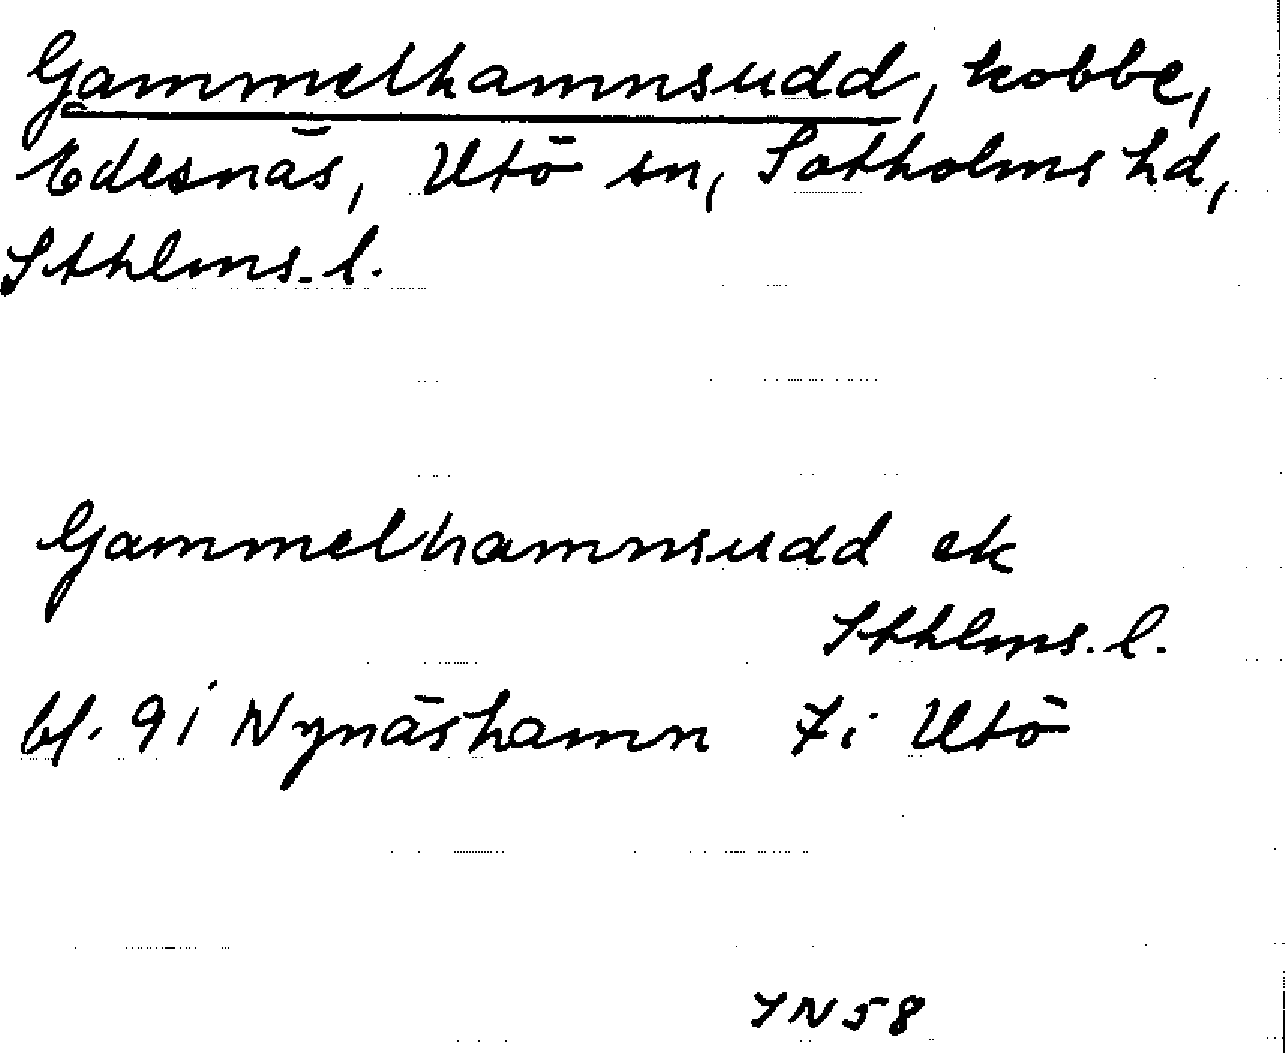 Gammelhamnsudd, kobbe,
Edesnäs, Utö sn, Sotholms hd,
Sthlms. l.
Gammelhamnsudd ek
Sthlms. l.
bl. 9 i Nynäshamn 7 i Utö
YN58